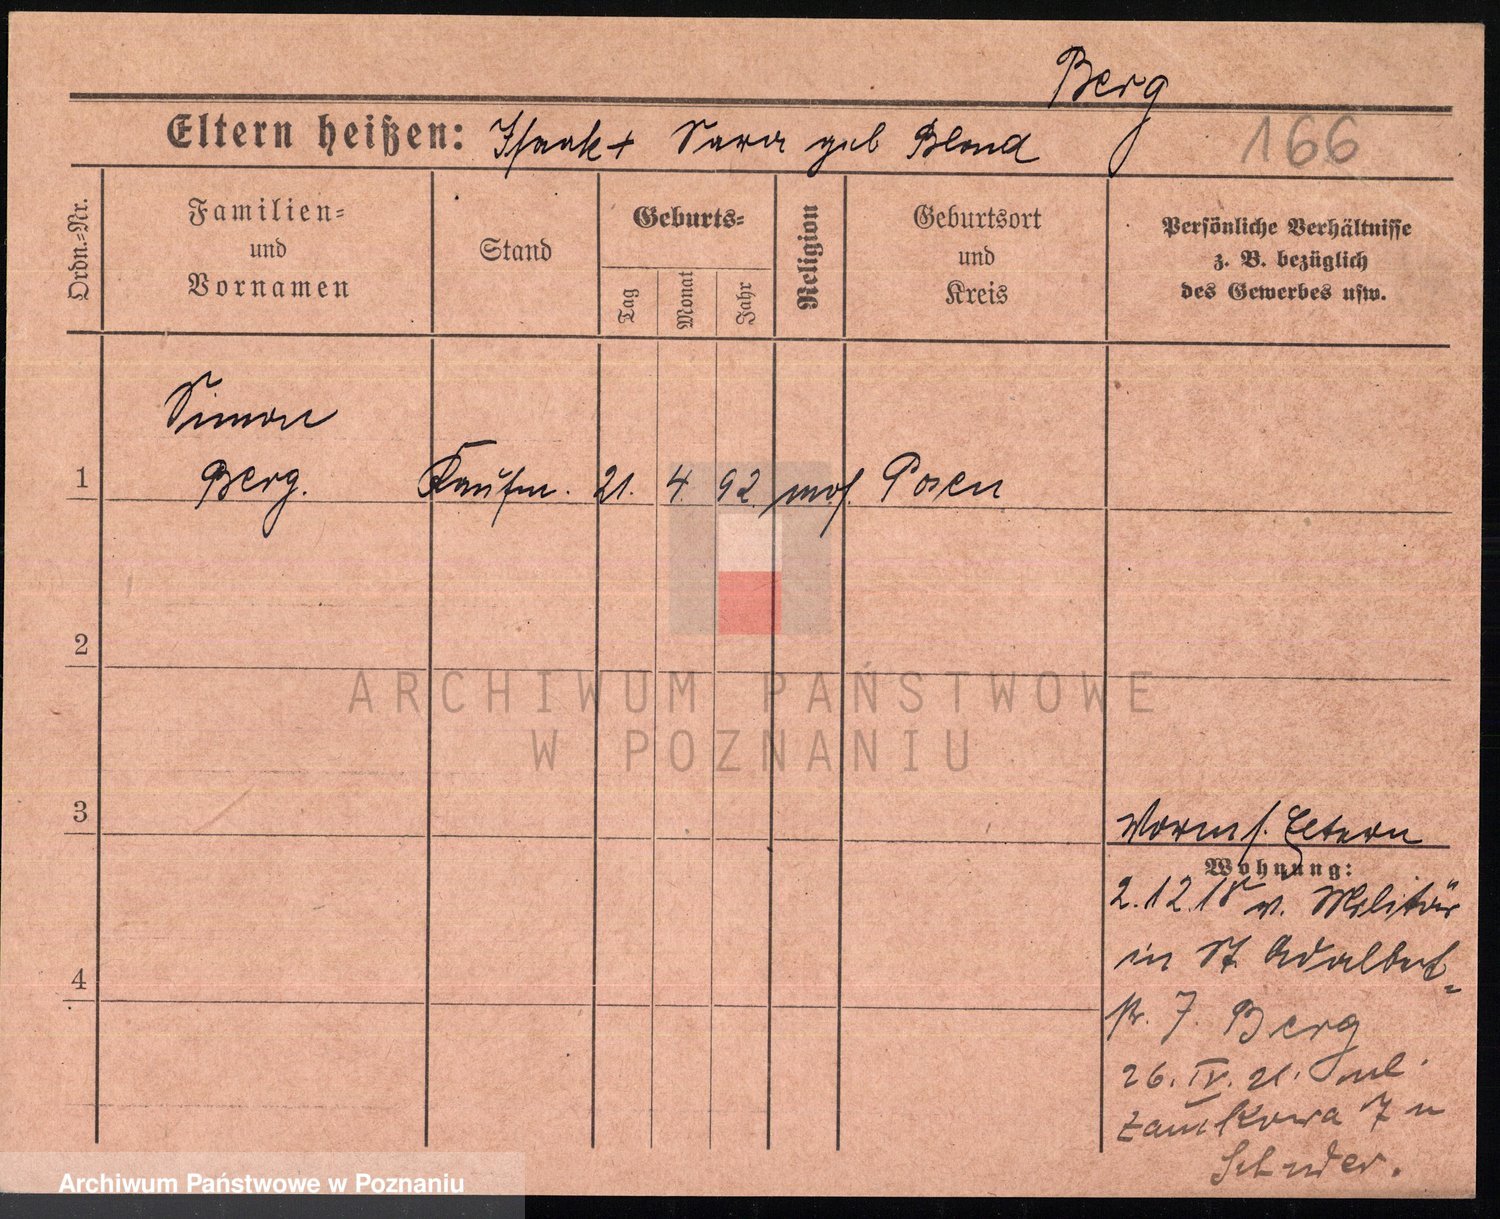 Berg
Eltern heißen: Isaak + Sara geb Blond
166
Ordn.=Nr.
Familien=
und
Vornamen
Stand
Geburts=
Tag
Monat
Jahr
Religion
Geburtsort
und
Kreis
Persönliche Verhältnisse
z. B. bezüglich
des Gewerbes usw.
Simon
1 Berg. Kaufm. 21. 4 92 mos. Posen
2
ARCHIWUM PAŃSTWOWE
W POZNANIU
3
Eltern
Wohnung:
2.12.18 v. Militär
in St. Adalbert=
4
str. 7. Berg
26. IV. 21. ul.
Zamkowa 7 u
Archiwum Państwowe w Poznaniu